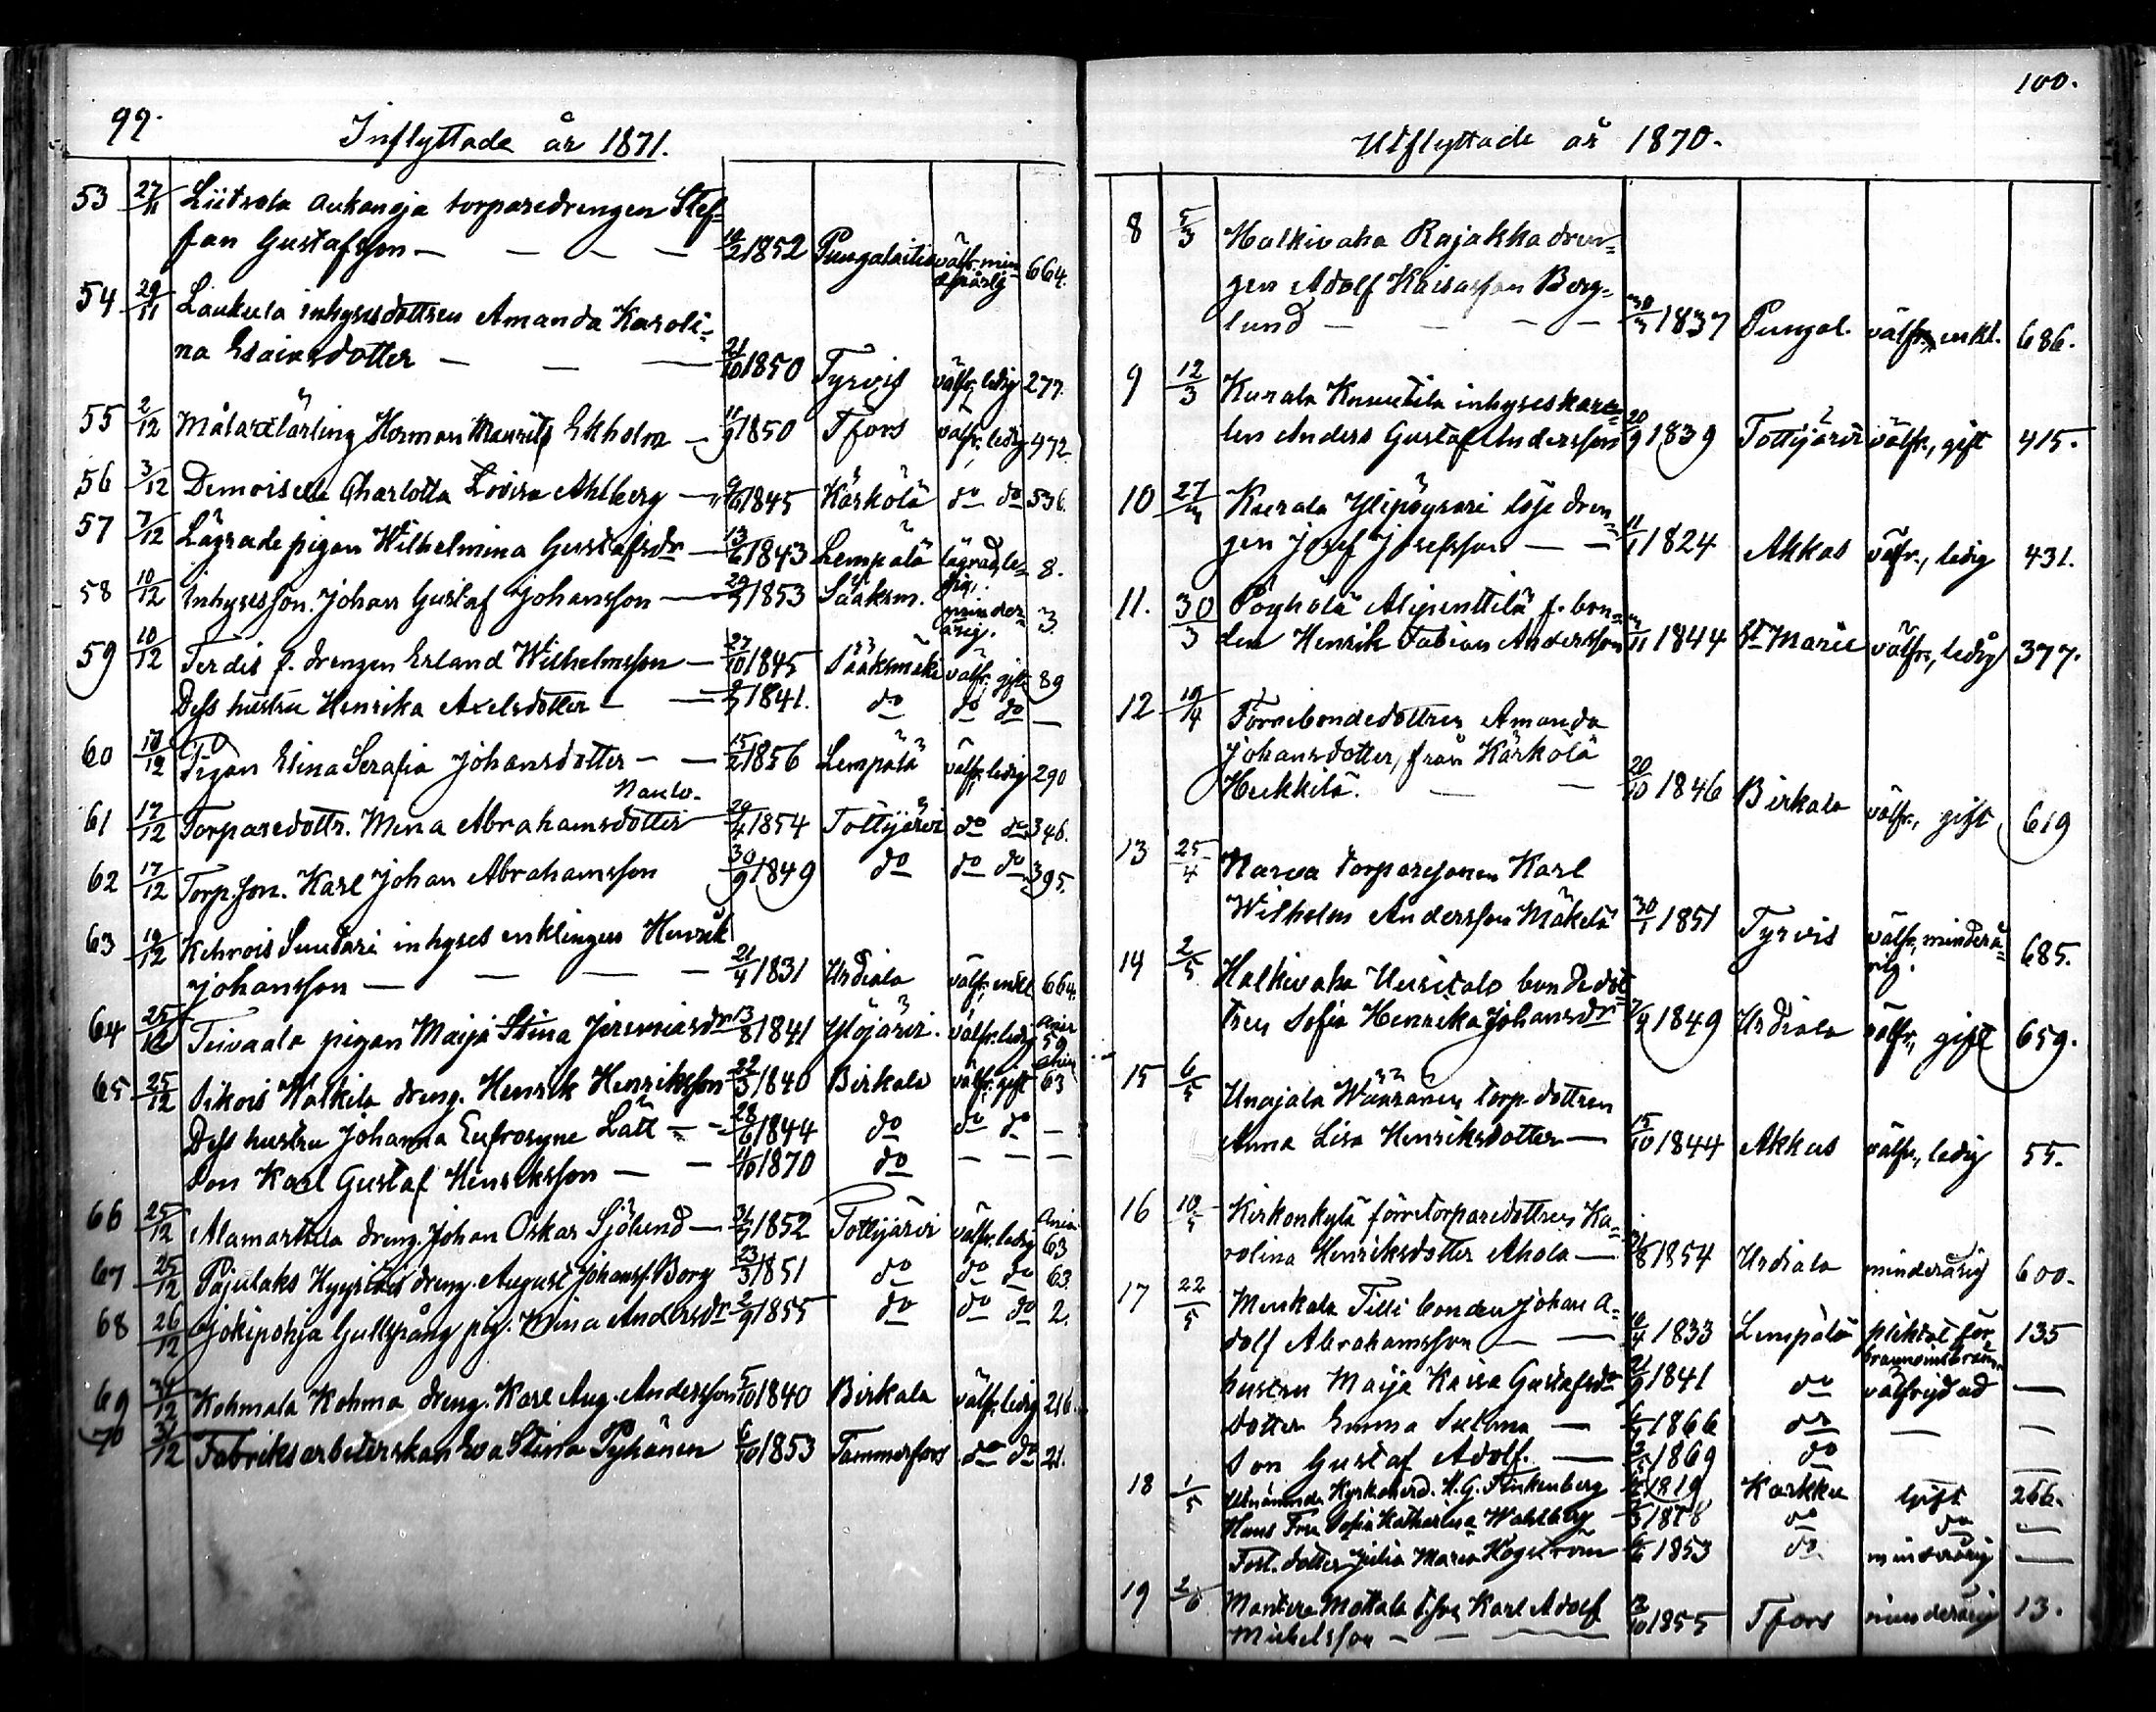 99.
Inflyttade år 1871.
53 27/11 Liitsola Aukanoja torparedrengen Stef=
fan Gustafsson — — — — 1852 Pungalaitio välfr. min 664.
derårig
54 29/11 Laukula inhysesdottren Amanda Karoli=
na Esaiasdotter — — — 21/10 1850 Tyrvis välfr, ledig 277.
55 2/12 Målarelärling Herman Maurits Ekholm — 11/9 1850 Tfors välfr, ledig 472.
56 3/12 Demoiselle Charlotta Lovisa Ahlberg — 1845 Kärkölä do do 536.
57 7/12 Lägrade pigan Wilhelmina Gustafsdr — 13/6 1843 Lempälä lägrad, le= 8.
dig.
58 10/12 Inhysesson. Johan Gustaf Johansson — 1853 Sääksm. minder 3.
årig.
59 10/12 Ferdis f. drengen Erland Wilhelmsson — 27/10 1845 Sääksmäki välfr, gift 89
Dess hustru Henrika Axelsdotter — — 1841. do do do —
60 10/12 Pigan Elina Serafia Johansdotter — — 15/2 1856 Lempälä välfr, ledig 290
Naulo.
61 17/12 Torparedottr. Mina Abrahamsdotter 29/4 1854 Tottijärvi do do 346.
62 17/12 Torp.son. Karl Johan Abrahamsson 30/9 1849 do do do 395.
63 19/12 Kehrois Suutari inhyses enklingen Henrik
Johansson — — — — 21/4 1831 Urdiala välfr, enkl. 664.
64 25/12 Teivaala pigan Maija Stina Jeremiasdr 13/8 1841 Ylöjärvi. välfr. ledig 59
65 25/12 Sikois Halkila dreng. Henrik Henriksson 22/3 1840 Birkala välfr. gift 63
Dess hustru Johanna Eufrosyne Lätt — — 28/6 1844 do do do —
Son Karl Gustaf Henriksson — — 11/10 1870 do — — —
66 25/12 Alamarttila dreng. Johan Oskar Sjölund — 1852 Tottijärvi välfr. ledig 63
67 25/12 Pajulaks dreng. August Johanss. Borg 23/3 1851 do do do 63
68 26/12 Jokipohja Gullspång pig. Mina Andersdr 2/9 1855 do do do 2.
69 Kohmala Kohma dreng. Karl Aug. Andersson 5/10 1840 Birkala välfr. ledig 216.
70 31/12 Fabriksarbeterskan Eva Stina Pyhänen 6/10 1853 Tammerfors do do 21.
100.
Utflyttade år 1870.
8 5/3 Halkivaha Rajakka dren=
gen Adolf Kaisasson Berg=
lund — — — — 1837 Pungal. välfr, enkl. 686.
9 12/3 Kurala Knuutila inhyseskar
len Anders Gustaf Andersson 20/9 1839 Tottijärvi välfr., gift 415.
10 27/3 Kurala Ylipöysäri löse dren=
gen Josef Josefsson — — 11/1 1824 Akkas välfr., ledig 431.
11. 30/3 Pöyhölä Alipenttilä f. bon=
den Henrik Fabian Andersson 1844 St Marie välfr., ledig 377.
12 19/4 Förrebondedottren Amanda
Johansdotter, från Kärkölä
Heikkilä. — — 20/10 1846 Birkala välfr., gift, 619
13 25/4 Narva torparesonen Karl
Wilhelm Andersson Mäkelä 30/1 1851 Tyrvis välfr, minderå= 685.
rig.
14 2/5 Halkivaha Uusitalo bondedot
tren Sofia Henrika Johansdr 1849 Urdiala välfr., gift 659.
15 6/5 Unajala Wääränen torp. dottren
Anna Lisa Henriksdotter — 15/10 1844 Akkas välfr., ledig 55.
16 10/5 Kirkonkylä förre torparedottren Ka=
rolina Henriksdotter Ahola — 1854 Urdiala minderårig 600.
17 22/5 Menkala Tilli bonden Johan A=
dolf Abrahamsson — — 1833 Lempälä pliktat för 135
hustru Maija Kaisa Gustafsdr 21/9 1841 do välfrejdad —
Dotter Emma Selma — 1866 do — —
Son Gustaf Adolf. — 1869 do —
18 1/5 Utnämnde Kyrkoherd. H. G. Finkenberg 1819 Karkku gift 266.
Hans Fru Sofia Katharina Wahlberg do do —
Fost. dotter Julia Maria Högström 1853 do minderårig —
19 2/6 Mantere Mottala Karl Adolf
Mickelsson — — 1855 Tfors minderårig 13.